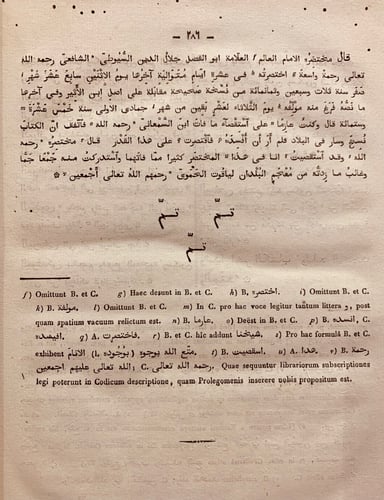 — ٢٨٩ —
قال مختصره الامام العالم العلامة ابو الفضل جلال الدين السيوطى الشافعى رحمه الله
تعالى رحمة واسعة اختصرته فى عشرة ايام متوالية آخرها يوم الاثنين سابع عشر شهر
صفر سنة ثلاث وسبعين وثمانمائة من نسخة صحيحة مقابلة على اصل ابن الأثير وفى آخرها
ما نصه فرغ منه مؤلفه يوم الثلاثاء لعشر بقين من شهر جمادى الاولى سنة خمس عشرة
وستمائة قال وكنت عازما على استقصاء ما فات ابن السمعانى رحمه الله فاتفق ان الكتاب
نسخ وسار فى البلاد فلم أر أن أفسده فاقتصرت على هذا القدر قال مختصره رحمه
الله وقد استقصيت انا فى هذا المختصر كثيرا مما فاتهما واستدركت منه جمعا جما
وغالب ما زدته من معجم البلدان لياقوت الحموى رحمهم الله تعالى أجمعين
تم تم
تم
f) Omittunt B. et C. g) Haec desunt in B. et C. h) B. اختصره. i) Omittunt B. et C.
k) B. مولفة. l) Omittunt B. et C. m) In C. pro hac voce legitur tantum littera و, post
quam spatium vacuum relictum est. n) B. عارما. o) Deëst in B. et C. p) B. انسده. C.
افيصده. q) A. فاختصرت. r) B. et C. hic addunt شيخنا. s) Pro hac formulâ B. et C.
exhibent متع الله بوجود (l. بوجوده) الانام. t) B. اسقصيت. u) A. هدا. v) B. رحمة
الله تعالى; C. رحمه الله تعالى عليهم اجمعين. Quae sequuntur librariorum subscriptiones
legi poterunt in Codicum descriptione, quam Prolegomenis inserere nobis propositum est.